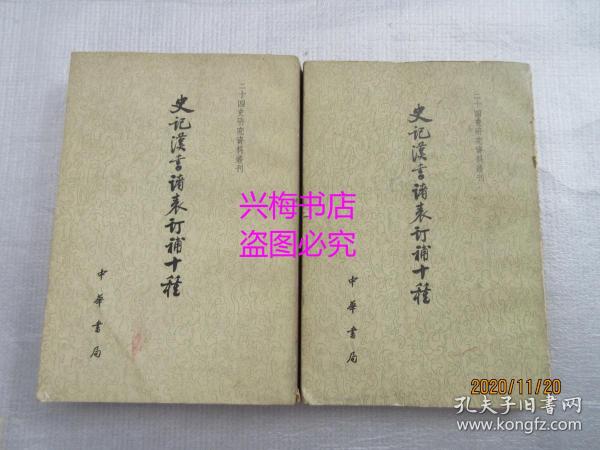 二十四史研究資料叢刊
史記漢書諸表訂補十種
中華書局
二十四史研究資料叢刊
史記漢書諸表訂補十種
中華書局
兴梅书店
盗图必究
2020/11/20
孔夫子旧书网
www.kongfz.com